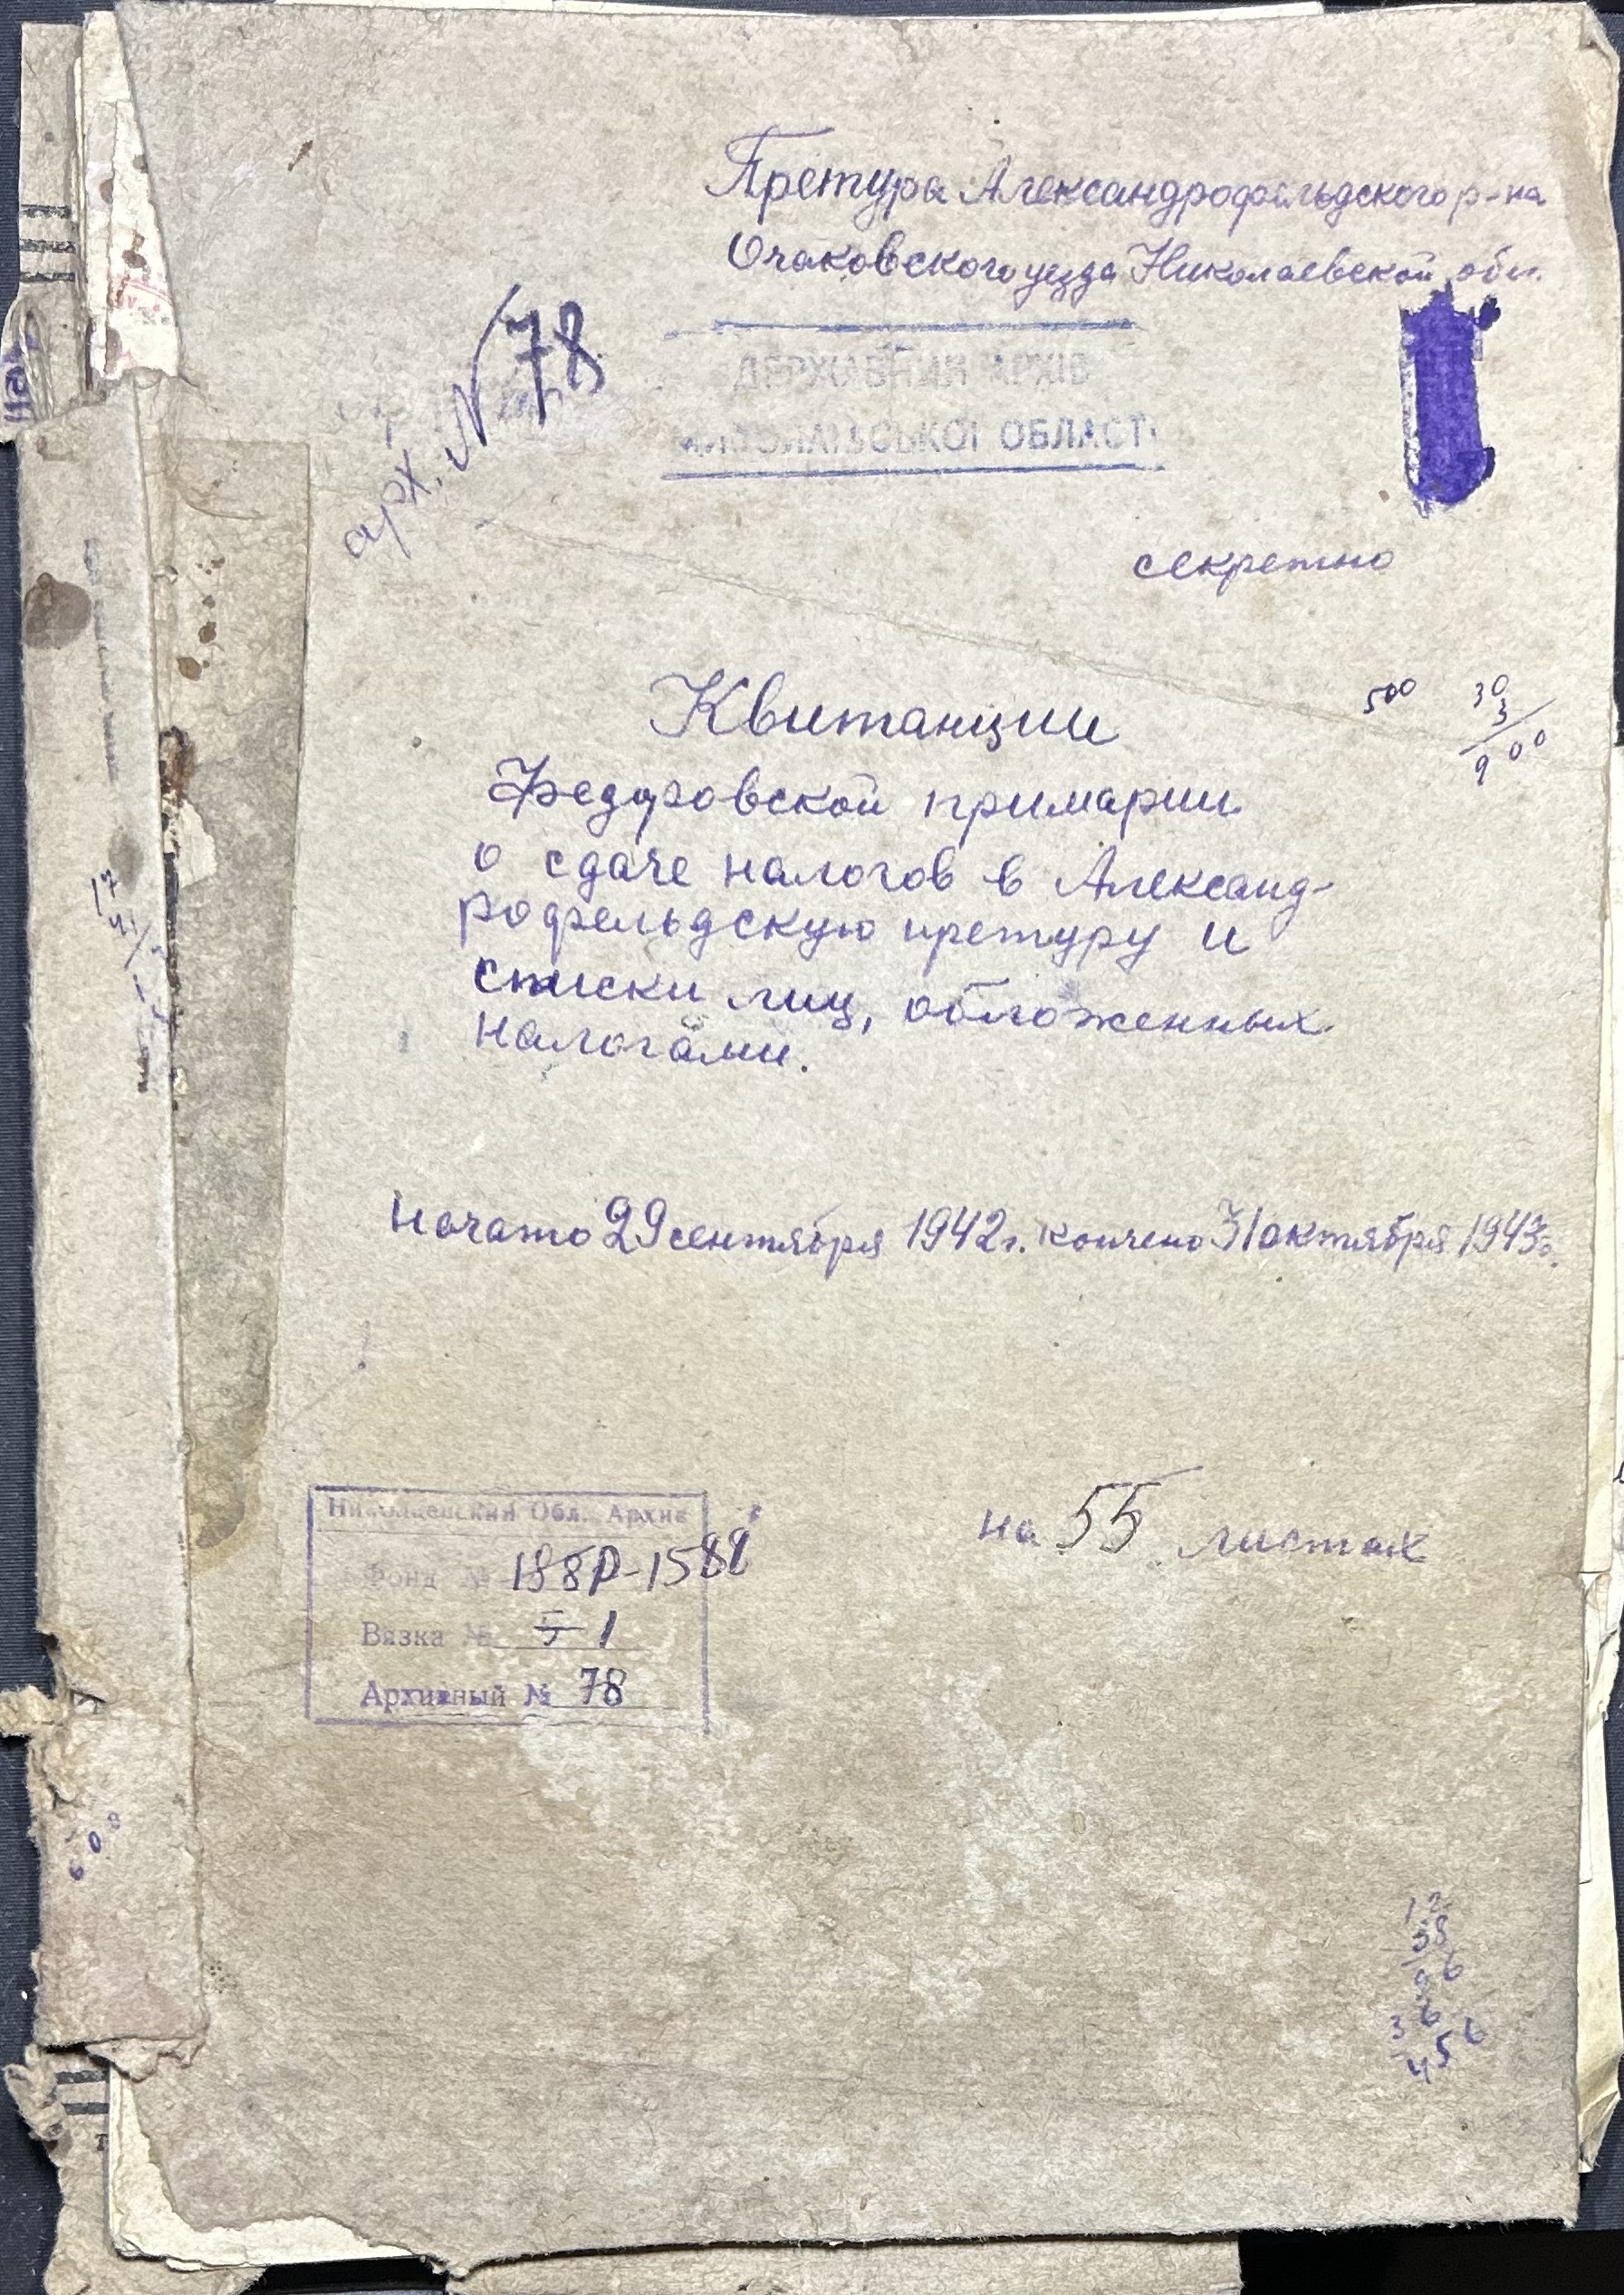 Претура Александрофельдского р-на
Очаковского уезда Николаевской обл.
арх. № 78
ДЕРЖАВНИЙ АРХІВ
МИКОЛАЇВСЬКОЇ ОБЛАСТІ
секретно
500
30
3
900
Квитанции
Федоровской примарии
о сдаче налогов в Александ-
рофельдскую претуру и
списки лиц, обложенных
налогами.
Начато 29 сентября 1942 г. кончено 31 октября 1943 г.
на 55 листах
Николаевский Обл. Архив
Фонд № 188Р-1588
Вязка № 5 1
Архивный № 78
600
12
38
96
36
456